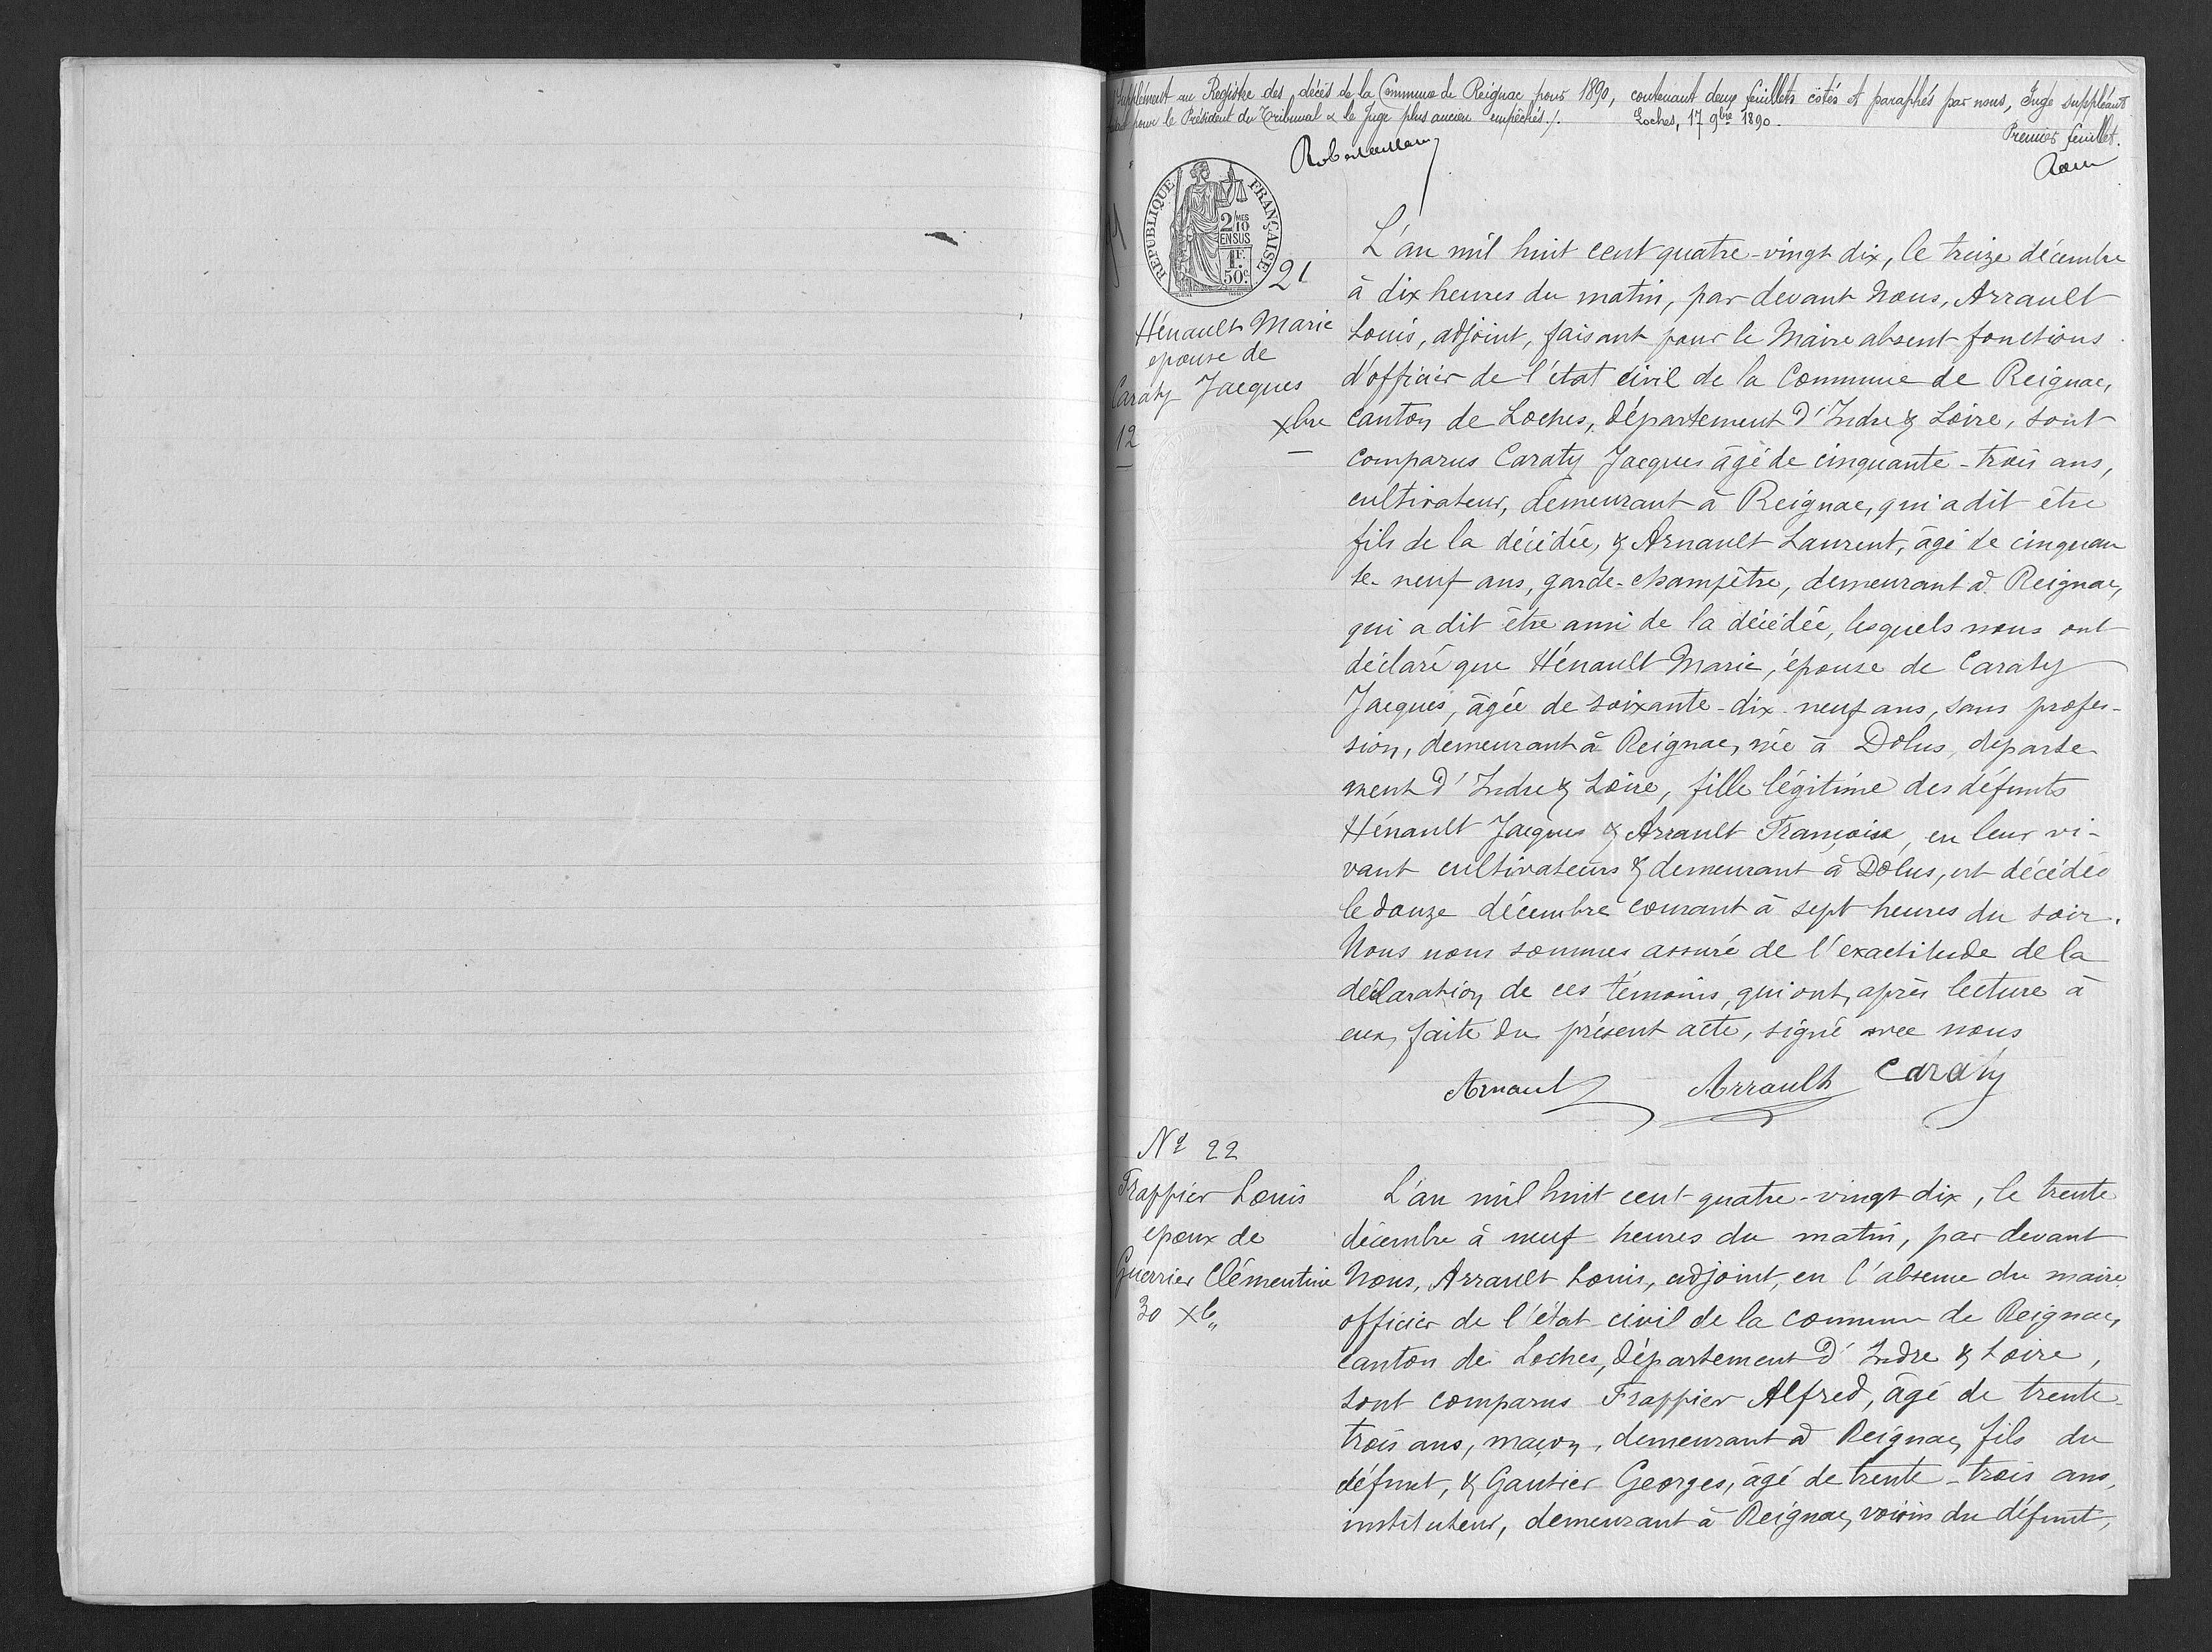 Supplément au Registre des décès de la Commune de Reignac pour 1890, contenant deux feuillets cotés et paraphés par nous, Juge suppléant
pour le Président du Tribunal & le Juge plus ancien empêchés ./. Loches, 17 9bre 1890.
Premier feuillet.
RÉPUBLIQUE FRANÇAISE
2/10 MES
EN SUS
1F.
50c.
21
Hénault Marie
épouse de
Caraty Jacques
12 xbre
L'an mil huit cent quatre-vingt dix, le treize décembre
à dix heures du matin, par devant Nous, Arrault
Louis, adjoint, faisant pour le Maire absent fonctions
d'officier de l'état civil de la Commune de Reignac,
canton de Loches, département d'Indre & Loire, sont
comparus Caraty Jacques âgé de cinquante-trois ans,
cultivateur, demeurant à Reignac, qui a dit être
fils de la décédée, & Arnault Laurent, âgé de cinquan
te-neuf ans, garde-champêtre, demeurant à Reignac,
qui a dit être ami de la décédée, lesquels nous ont
déclaré que Hénault Marie, épouse de Caraty
Jacques, âgée de soixante-dix-neuf ans, sans profes-
sion, demeurant à Reignac, née à Dolus, départe
ment d'Indre & Loire, fille légitime des défunts
Hénault Jacques & Arrault Françoise, en leur vi-
vant cultivateurs & demeurant à Dolus, est décédée
le douze décembre courant à sept heures du soir.
Nous nous sommes assuré de l'exactitude de la
déclaration de ces témoins, qui ont, après lecture à
eux faite du présent acte, signé avec nous
Arnault Arrault Caraty
No 22
Frappier Louis
époux de
Guerrier Clémentine
30 xb"
L'an mil huit cent quatre-vingt dix, le trente
décembre à neuf heures du matin, par devant
Nous, Arrault Louis, adjoint, en l'absence du maire
officier de l'état civil de la commune de Reignac,
canton de Loches, département d'Indre & Loire,
sont comparus Frappier Alfred, âgé de trente-
trois ans, maçon, demeurant à Reignac, fils du
défunt, & Gautier Georges, âgé de trente-trois ans,
instituteur, demeurant à Reignac, voisin du défunt,